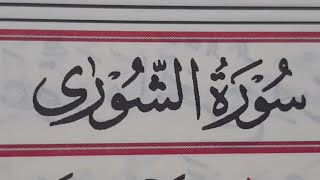 سُوْرَةُ الشُّوْرٰى